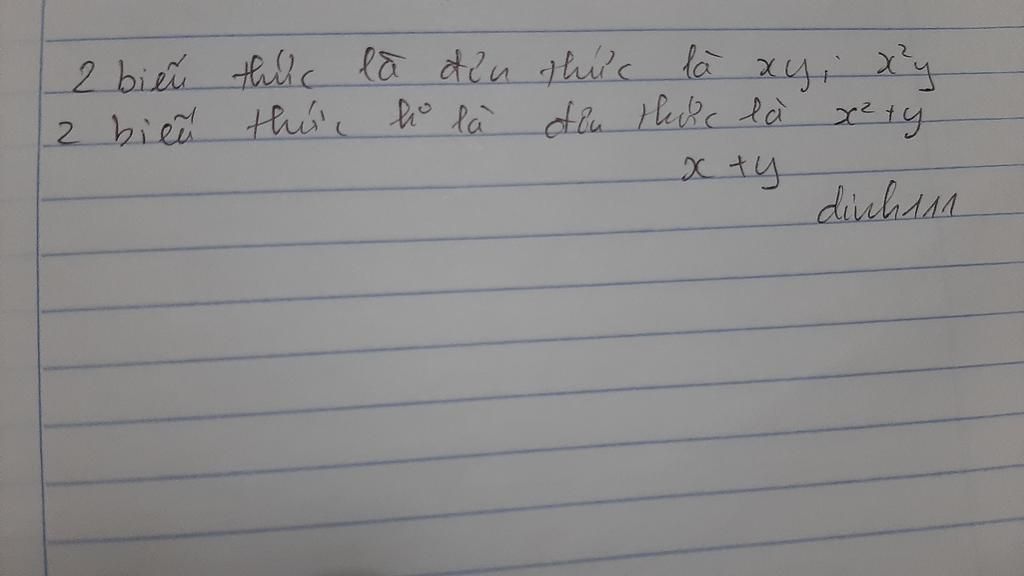 2 biểu thức là đơn thức là xy; x²y
2 biểu thức k° là đơn thức là x² + y
x + y
dinh111